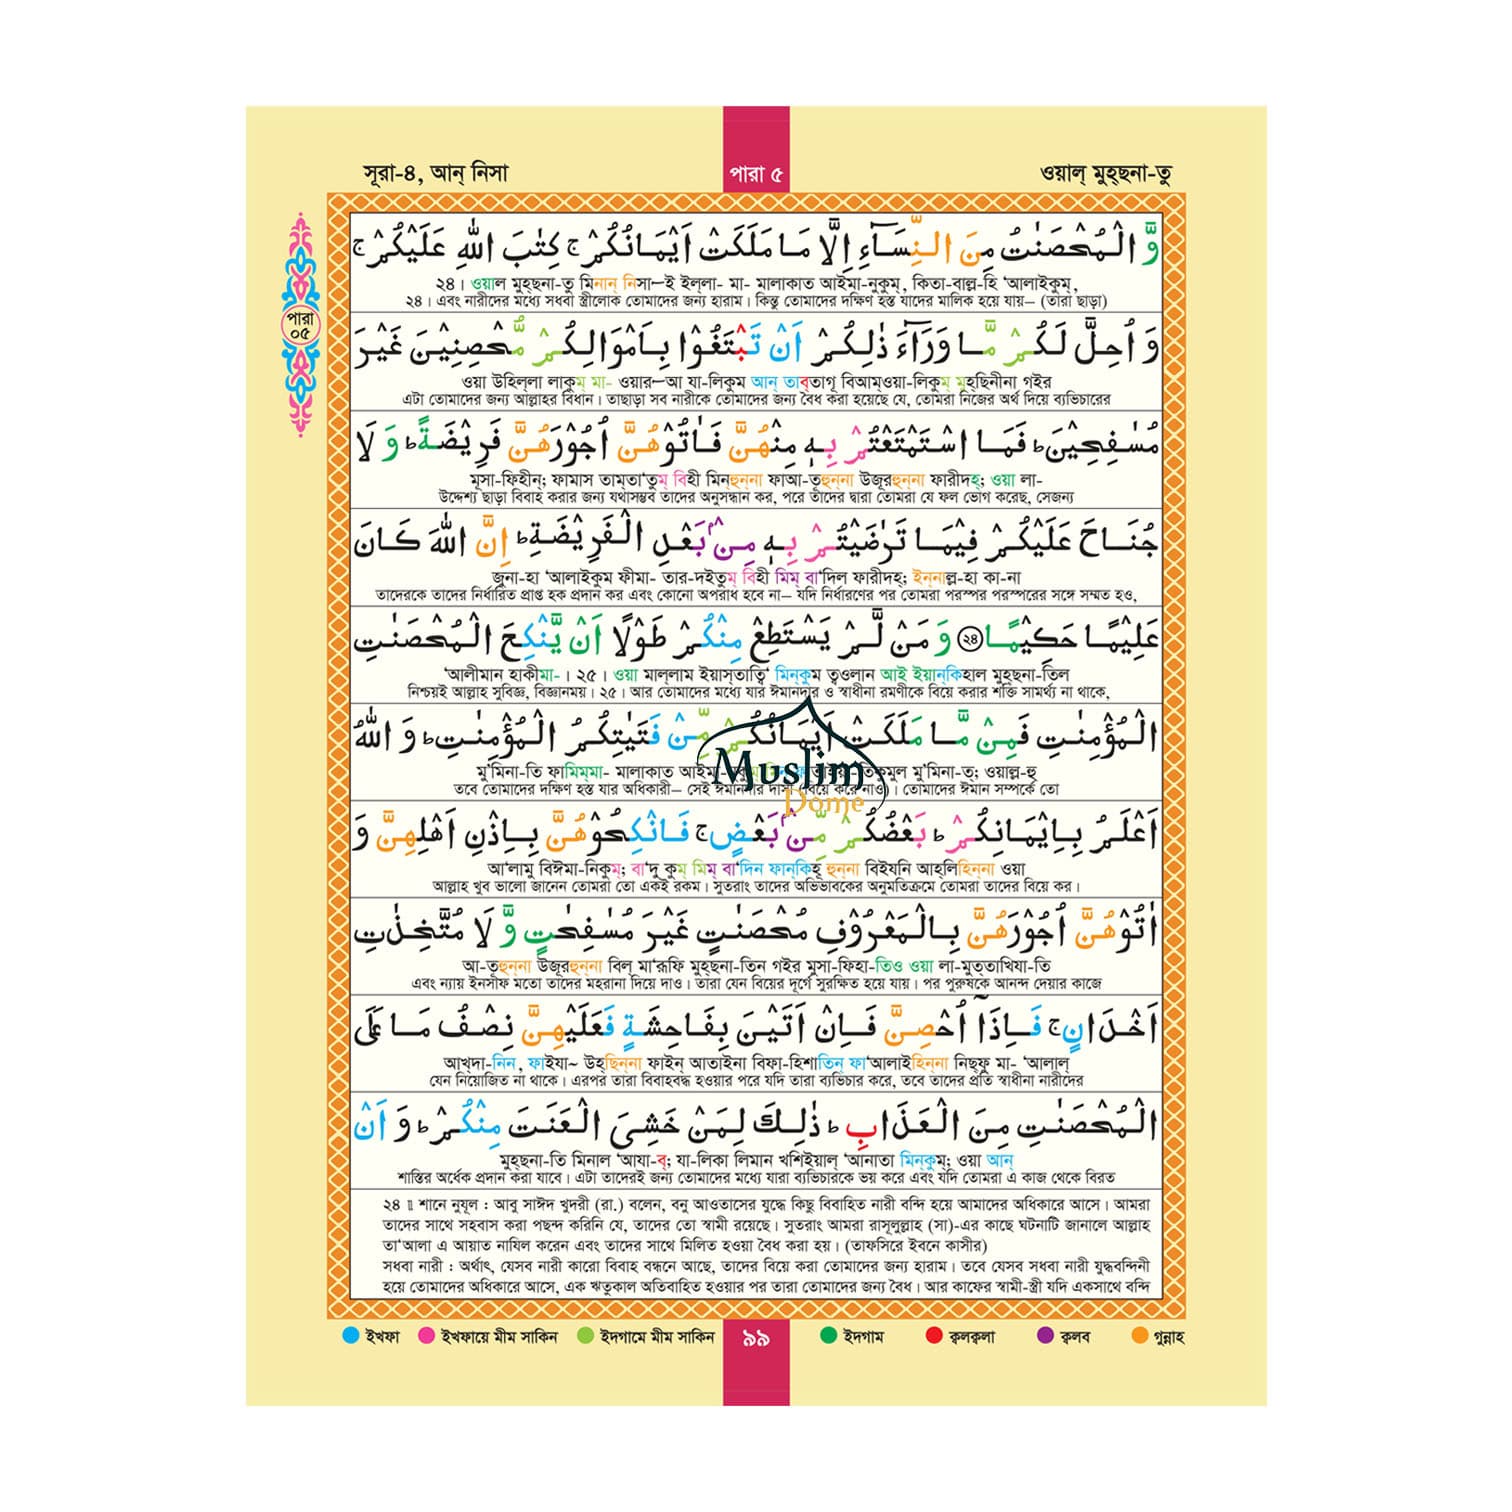 সূরা-৪, আন্ নিসা
পারা ৫
ওয়াল্ মুহ্ছনা-তু
পারা
০৫
وَّ الْمُحْصَنٰتُ مِنَ النِّسَآءِ اِلَّا مَا مَلَكَتْ اَيْمَانُكُمْ ۚ كِتٰبَ اللّٰهِ عَلَيْكُمْ ۚ
২৪। ওয়াল মুহ্ছনা-তু মিনান্ নিসা—ই ইল্লা- মা- মালাকাত আইমা-নুকুম্, কিতা-বাল্ল-হি ‘আলাইকুম্,
২৪। এবং নারীদের মধ্যে সধবা স্ত্রীলোক তোমাদের জন্য হারাম। কিন্তু তোমাদের দক্ষিণ হস্ত যাদের মালিক হয়ে যায়– (তারা ছাড়া)
وَ اُحِلَّ لَكُمْ مَّا وَرَآءَ ذٰلِكُمْ اَنْ تَبْتَغُوْا بِاَمْوَالِكُمْ مُّحْصِنِيْنَ غَيْرَ
ওয়া উহিল্লা লাকুম্ মা- ওয়ার—আ যা-লিকুম আন্ তাব্তাগূ বিআম্ওয়া-লিকুম্ মুহ্ছিনীনা গইর
এটা তোমাদের জন্য আল্লাহর বিধান। তাছাড়া সব নারীকে তোমাদের জন্য বৈধ করা হয়েছে যে, তোমরা নিজের অর্থ দিয়ে ব্যভিচারের
مُسٰفِحِيْنَ ؕ فَمَا اسْتَمْتَعْتُمْ بِهٖ مِنْهُنَّ فَاٰتُوْهُنَّ اُجُوْرَهُنَّ فَرِيْضَةً ؕ وَ لَا
মুসা-ফিহীন্; ফামাস তাম্তা‘তুম্ বিহী মিন্হুন্না ফাআ-তূহুন্না উজূরহুন্না ফারীদহ্; ওয়া লা-
উদ্দেশ্য ছাড়া বিবাহ করার জন্য যথাসম্ভব তাদের অনুসন্ধান কর, পরে তাদের দ্বারা তোমরা যে ফল ভোগ করেছ, সেজন্য
جُنَاحَ عَلَيْكُمْ فِيْمَا تَرٰضَيْتُمْ بِهٖ مِنْۢ بَعْدِ الْفَرِيْضَةِ ؕ اِنَّ اللّٰهَ كَانَ
জুনা-হা ‘আলাইকুম ফীমা- তার-দইতুম্ বিহী মিম্ বা‘দিল ফারীদহ্; ইন্নাল্ল-হা কা-না
তাদেরকে তাদের নির্ধারিত প্রাপ্ত হক প্রদান কর এবং কোনো অপরাধ হবে না– যদি নির্ধারণের পর তোমরা পরস্পর পরস্পরের সঙ্গে সম্মত হও,
عَلِيْمًا حَكِيْمًا ۝২৪ وَ مَنْ لَّمْ يَسْتَطِعْ مِنْكُمْ طَوْلًا اَنْ يَّنْكِحَ الْمُحْصَنٰتِ
‘আলীমান হাকীমা-। ২৫। ওয়া মাল্লাম ইয়াস্তাত্বি‘ মিন্কুম ত্বওলান আই ইয়ান্কিহাল মুহ্ছনা-তিল
নিশ্চয়ই আল্লাহ সুবিজ্ঞ, বিজ্ঞানময়। ২৫। আর তোমাদের মধ্যে যার ঈমানদার ও স্বাধীনা রমণীকে বিয়ে করার শক্তি সামর্থ্য না থাকে,
الْمُؤْمِنٰتِ فَمِنْ مَّا مَلَكَتْ اَيْمَانُكُمْ مِّنْ فَتَيٰتِكُمُ الْمُؤْمِنٰتِ ؕ وَ اللّٰهُ
মু’মিনা-তি ফামিম্মা- মালাকাত আইমা-তিকুমুল মু’মিনা-ত্; ওয়াল্ল-হু
তবে তোমাদের দক্ষিণ হস্ত যার অধিকারী– সেই ঈমানদার দাসী (বিয়ে করে নাও)। তোমাদের ঈমান সম্পর্কে তো
Muslim
Dome
اَعْلَمُ بِاِيْمَانِكُمْ ؕ بَعْضُكُمْ مِّنْۢ بَعْضٍ ۚ فَانْكِحُوْهُنَّ بِاِذْنِ اَهْلِهِنَّ وَ
আ‘লামু বিঈমা-নিকুম্; বা‘দু কুম্ মিম্ বা‘দিন ফান্কিহূ হুন্না বিইযনি আহ্লিহিন্না ওয়া
আল্লাহ খুব ভালো জানেন তোমরা তো একই রকম। সুতরাং তাদের অভিভাবকের অনুমতিক্রমে তোমরা তাদের বিয়ে কর।
اٰتُوْهُنَّ اُجُوْرَهُنَّ بِالْمَعْرُوْفِ مُحْصَنٰتٍ غَيْرَ مُسٰفِحٰتٍ وَّ لَا مُتَّخِذٰتِ
আ-তূহুন্না উজূরহুন্না বিল্ মা‘রূফি মুহ্ছনা-তিন গইর মুসা-ফিহা-তিও ওয়া লা-মুত্তাখিযা-তি
এবং ন্যায় ইনসাফ মতো তাদের মহরানা দিয়ে দাও। তারা যেন বিয়ের দূর্গে সুরক্ষিত হয়ে যায়। পর পুরুষকে আনন্দ দেয়ার কাজে
اَخْدَانٍ ۚ فَاِذَآ اُحْصِنَّ فَاِنْ اَتَيْنَ بِفَاحِشَةٍ فَعَلَيْهِنَّ نِصْفُ مَا عَلَى
আখ্দা-নিন, ফাইযা~ উহ্ছিন্না ফাইন্ আতাইনা বিফা-হিশাতিন্ ফা‘আলাইহিন্না নিছ্ফু মা- ‘আলাল্
যেন নিয়োজিত না থাকে। এরপর তারা বিবাহবদ্ধ হওয়ার পরে যদি তারা ব্যভিচার করে, তবে তাদের প্রতি স্বাধীনা নারীদের
الْمُحْصَنٰتِ مِنَ الْعَذَابِ ؕ ذٰلِكَ لِمَنْ خَشِىَ الْعَنَتَ مِنْكُمْ ؕ وَ اَنْ
মুহ্ছনা-তি মিনাল ‘আযা-ব্; যা-লিকা লিমান খশিইয়াল্ ‘আনাতা মিন্কুম্; ওয়া আন্
শাস্তির অর্ধেক প্রদান করা যাবে। এটা তাদেরই জন্য তোমাদের মধ্যে যারা ব্যভিচারকে ভয় করে এবং যদি তোমরা এ কাজ থেকে বিরত
২৪ ॥ শানে নুযূল : আবু সাঈদ খুদরী (রা.) বলেন, বনু আওতাসের যুদ্ধে কিছু বিবাহিত নারী বন্দি হয়ে আমাদের অধিকারে আসে। আমরা
তাদের সাথে সহবাস করা পছন্দ করিনি যে, তাদের তো স্বামী রয়েছে। সুতরাং আমরা রাসূলুল্লাহ (সা)-এর কাছে ঘটনাটি জানালে আল্লাহ
তা‘আলা এ আয়াত নাযিল করেন এবং তাদের সাথে মিলিত হওয়া বৈধ করা হয়। (তাফসিরে ইবনে কাসীর)
সধবা নারী : অর্থাৎ, যেসব নারী কারো বিবাহ বন্ধনে আছে, তাদের বিয়ে করা তোমাদের জন্য হারাম। তবে যেসব সধবা নারী যুদ্ধবন্দিনী
হয়ে তোমাদের অধিকারে আসে, এক ঋতুকাল অতিবাহিত হওয়ার পর তারা তোমাদের জন্য বৈধ। আর কাফের স্বামী-স্ত্রী যদি একসাথে বন্দি
ইখফা
ইখফায়ে মীম সাকিন
ইদগামে মীম সাকিন
৯৯
ইদগাম
ক্বলক্বলা
ক্বলব
গুন্নাহ